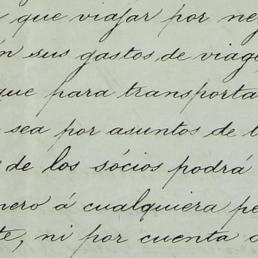 que viajar por neg
sus gastos de viage
que para transporta
sea por asuntos de l
de los sócios podrá
nero á cualquiera pe
te, ni por cuenta d